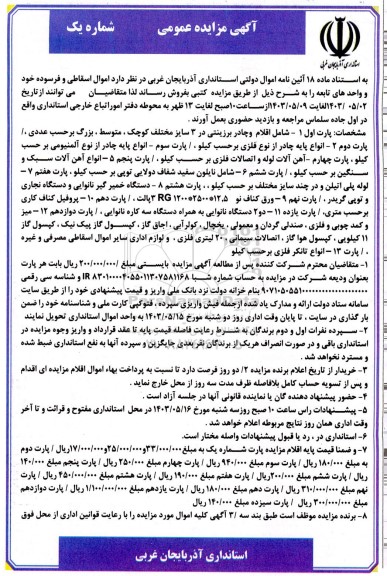 آگهی مزایده عمومی شماره یک
استانداری آذربایجان غربی
به استناد ماده ۱۸ آئین نامه اموال دولتی استانداری آذربایجان غربی در نظر دارد اموال اسقاطی و فرسوده خود
و واحد های تابعه را به شرح ذیل از طریق مزایده کتبی بفروش رساند لذا متقاضیان می توانند از تاریخ
۱۴۰۳/۰۵/۰۲ لغایت ۱۴۰۳/۰۵/۰۹ از ساعت ۱۰ صبح لغایت ۱۳ ظهر به محوطه دفتر امور اتباع خارجی استانداری واقع
در اول جاده سلماس مراجعه و بازدید حضوری بعمل آورند .
مشخصات: پارت اول ۱ - شامل اقلام وچادر برزینتی در ۳ سایز مختلف کوچک ، متوسط ، بزرگ برحسب عددی ./
پارت دوم ۲ - انواع پایه چادر از نوع فلزی برحسب کیلو . / پارت سوم - انواع پایه چادر از نوع آلمنیومی بر حسب
کیلو. پارت چهارم - آهن آلات لوله و اتصالات فلزی بر حسب کیلو . / پارت پنجم ۵ - انواع آهن آلات سبک و
سنگین بر حسب کیلو . / پارت ششم ۶ - شامل نایلون سفید شفاف دولایی توپی بر حسب کیلو. پارت هفتم ۷ -
لوله پلی اتیلن و در چند سایز مختلف بر حسب کیلو . . پارت هشتم ۸ - دستگاه خمیر گیر نانوایی و دستگاه نجاری
و توپی گریدر . / پارت نهم ۹ - ورق کناف نو ۱۲.۵*۲۵۰۰*۱۲۰۰ RG ۳پالت . / پارت دهم ۱۰ - پروفیل کناف کاری
برحسب متری. / پارت یازده ۱۱ - دو۲ دستگاه نانوایی به همراه دستگاه سه کاره نانوایی . / پارت دوازدهم ۱۲ - میز
و کمد چوبی و فلزی ، صندلی گردان و معمولی ، یخچال ، کولر آبی ، اجاق گاز ، کپسول گاز پیک نیک ، کپسول گاز
۱۱ کیلویی ، کپسول هوا گاز ، اتصالات سیمانی ۲۰ لیتری فلزی ، و لوازم اداری سایر اموال اسقاطی مصرفی و غیره
. / پارت ۱۳ - انواع تانکر فلزی برحسب کیلو
۱ - متقاضیان محترم شرکت کننده پس از مطالعه آگهی مزایده بایستی مبلغ ۲۰۰/۰۰۰/۰۰۰ ریال بابت هر پارت
بعنوان ودیعه شرکت در مزایده به حساب شماره شبا و شناسه رقمی
بنام خزانه دولت نزد بانک ملی واریز و قیمت پیشنهادی خود را از طریق سایت
سامانه ستاد دولت ارائه و مدارک یاد شده ازجمله فیش واریزی سپرده ، فتوکپی کارت ملی و شناسنامه خود را ضمن
بار گذاری در سایت ، تا پایان وقت اداری روز دو شنبه مورخ ۱۴۰۳/۰۵/۱۵ به واحد اموال استانداری تحویل نمایند
۲ - سپرده نفرات اول و دوم برندگان به شرط رعایت فاصله قیمت پایه تا عقد قرارداد و واریز وجوه مزایده در
استانداری باقی و در صورت انصراف هریک از برندگان نفر بعدی جایگزین و سپرده آنها به نفع استانداری ضبط شده
و مسترد نخواهد شد .
۳ - خریدار از تاریخ اعلام برنده مزایده ۲/ دو روز فرصت دارد تا نسبت به پرداخت بهاء اموال اقلام مزایده ای اقدام
و پس از تسویه حساب کامل بلافاصله ظرف مدت سه روز از محل خارج نماید .
۴ - حضور پیشنهاد دهنده گان یا نماینده قانونی آنها در جلسه آزاد است .
۵ - پیشنهادات راس ساعت ۱۰ صبح روزسه شنبه مورخ ۱۴۰۳/۰۵/۱۶ در محل استانداری مفتوح و قرائت و تا آخر
وقت اداری همان روز نتایج مربوطه اعلام خواهد شد .
۶ - استانداری در ، رد یا قبول پیشنهادات واصله مختار است.
۷ - و ضمنا قیمت پایه اقلام مزایده پارت شماره یک به مبلغ ۳۳/۰۰۰/۰۰۰و۲۵/۰۰۰/۰۰۰و۱۷/۰۰۰/۰۰۰ریال / پارت دوم
به مبلغ ۱۸۰/۰۰۰ ریال / پارت سوم مبلغ ۹۴۰/۰۰۰ ریال / پارت چهارم مبلغ ۲۵۰/۰۰۰ ریال / پارت پنجم مبلغ ۱۴۰/۰۰۰
ریال / پارت ششم مبلغ ۲۰۰/۰۰۰ ریال / پارت هفتم مبلغ ۱۹۰/۰۰۰ ریال / پارت هشتم مبلغ ۴۵۰/۰۰۰/۰۰۰ ریال / پارت
نهم مبلغ ۳۱۰/۰۰۰/۰۰۰ ریال / پارت دهم مبلغ ۱۸۰/۰۰۰ ریال / پارت یازدهم مبلغ ۱/۱۰۰/۰۰۰/۰۰۰ ریال / پارت دوازدهم
مبلغ ۳۰۰/۰۰۰/۰۰۰ ریال / پارت سیزده مبلغ ۱۴۰/۰۰۰ ریال
۸ - برنده مزایده موظف است طبق بند سه ۳/ آگهی کلیه اموال مورد مزایده را با رعایت قوانین اداری از محل فوق
استانداری آذربایجان غربی